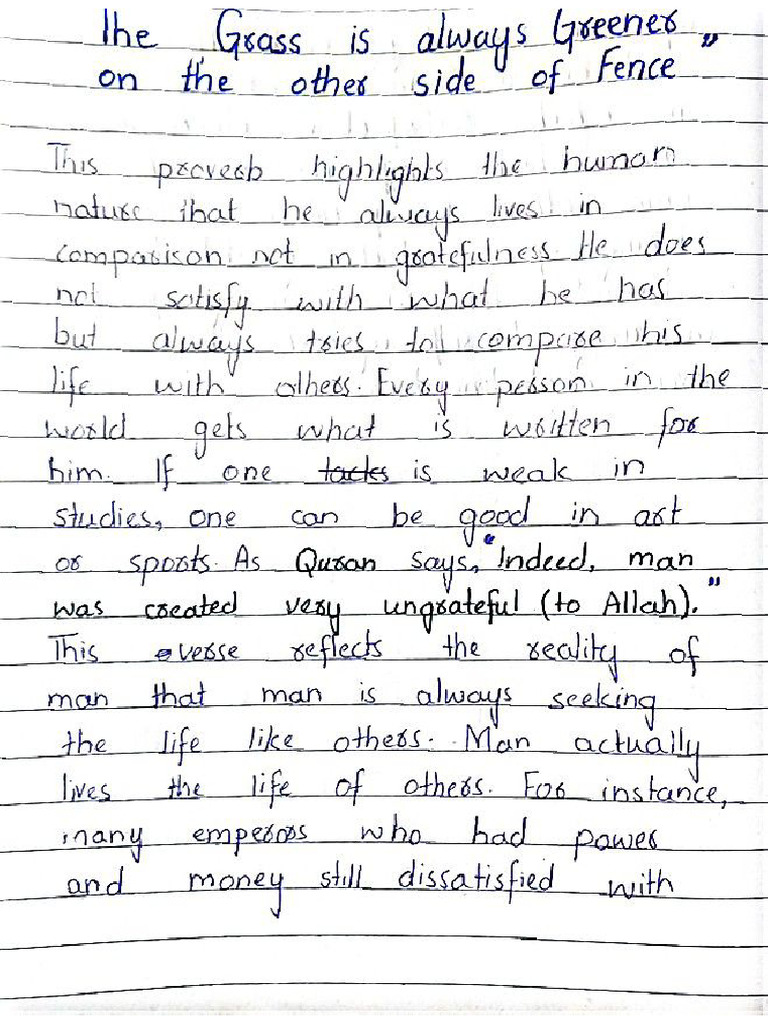 The Grass is always Greener
on the other side of Fence"
This proverb highlights the human
nature that he always lives in
comparison not in gratefulness. He does
not satisfy with what he has
but always tries to compare his
life with others. Every person in the
world gets what is written for
him. If one tacks is weak in
studies, one can be good in art
or sports. As Quran says, "Indeed, man
was created very ungrateful (to Allah)."
This verse reflects the reality of
man that man is always seeking
the life like others. Man actually
lives the life of others. For instance,
many emperors who had power
and money still dissatisfied with